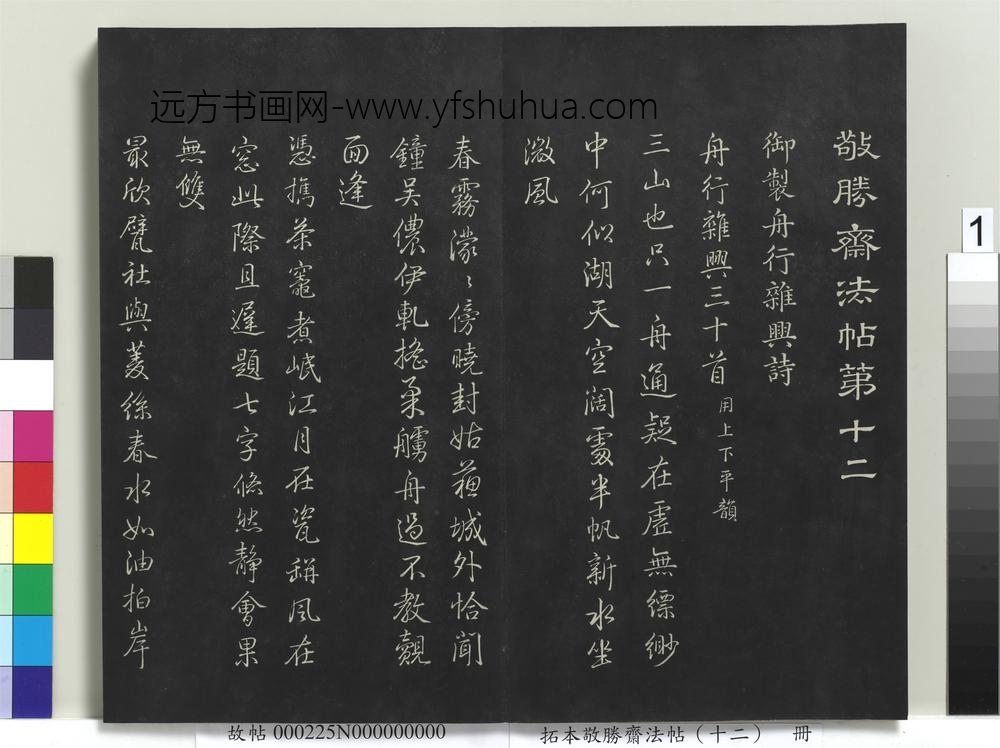 远方书画网-www.yfshuhua.com
敬勝齋法帖第十二
御製舟行雜興詩
舟行雜興三十首用上下平韻
三山也只一舟通疑在虛無縹緲
中何似湖天空闊處半帆新水坐
微風
春霧濛〻傍曉封姑蘓城外恰聞
鐘吳儂伊軋搖柔艣舟過不教覿
面逢
憑攜茶竈煮岷江月在瓷稱風在
窓此際且遲題七字悠然靜會果
無雙
最欣甓社與菱絲春水如油拍岸
1
故帖 000225N000000000
拓本敬勝齋法帖（十二） 冊